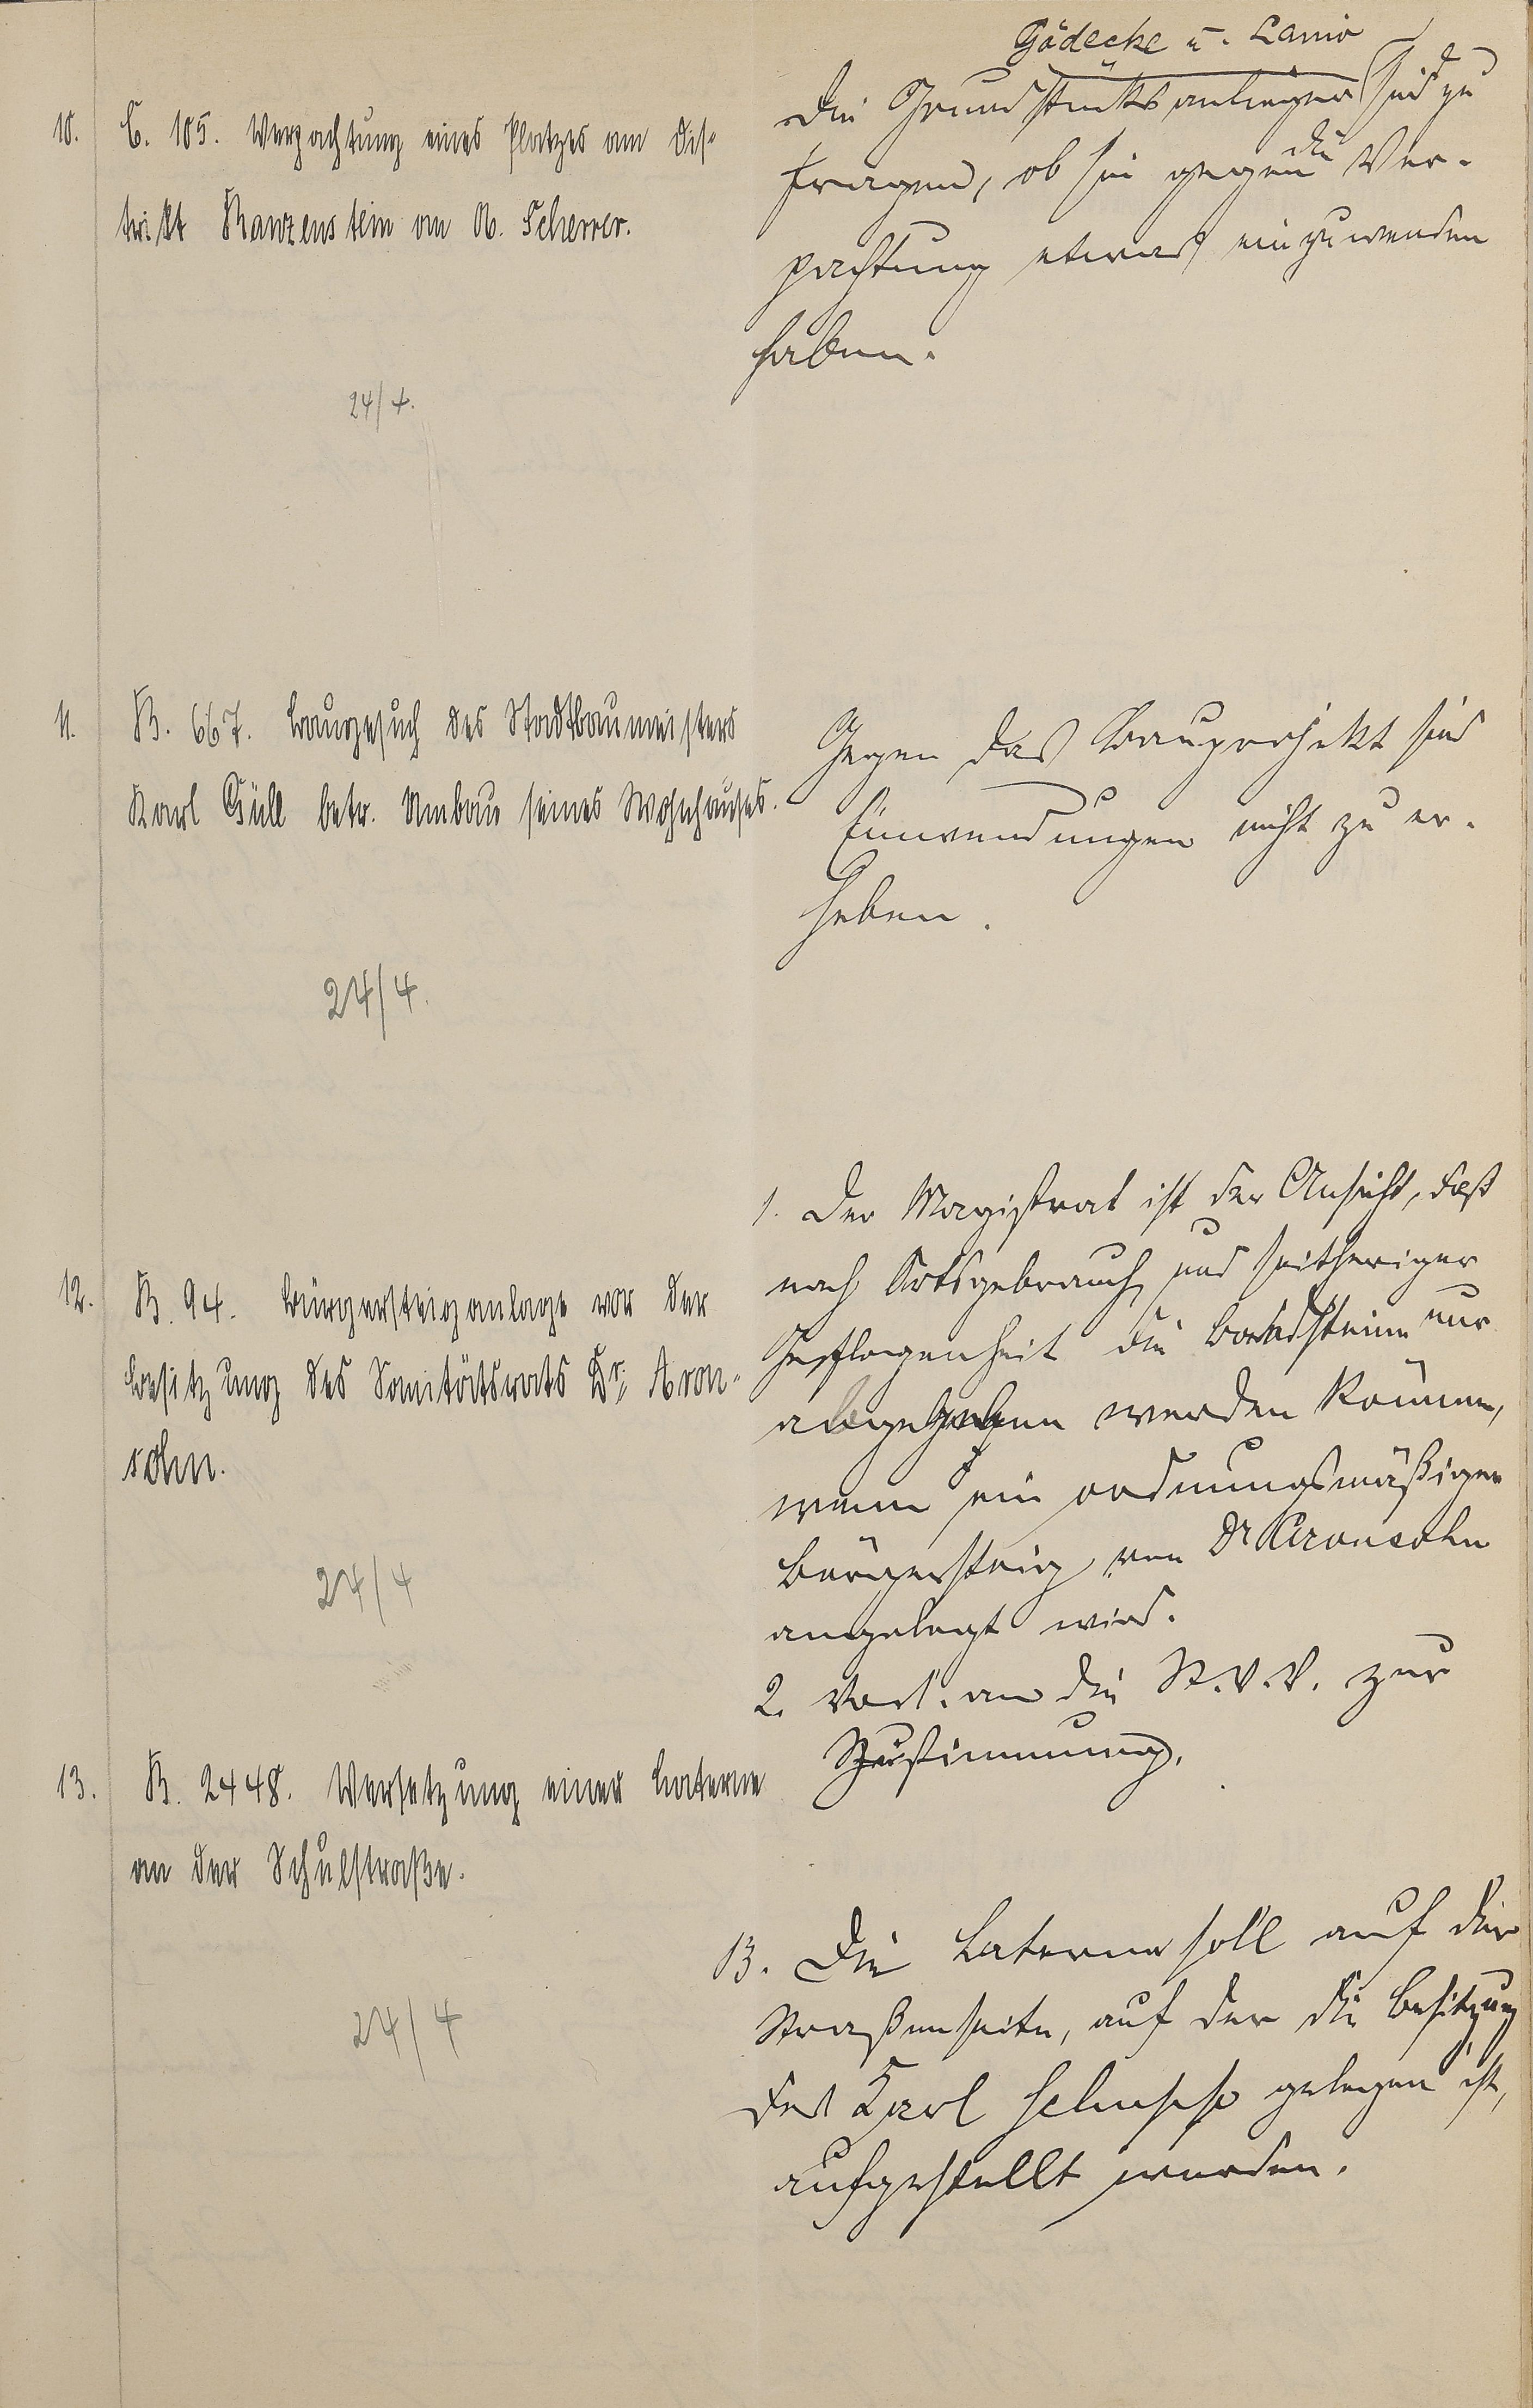 10. C. 105. Verpachtung eines Platzes am Dis-
trikt Kanzenstein an A. Scherrer.
24/4.
Gödecke u. Lanio
Die Grundstücksanlieger sind zu
fragen, ob sie gegen die Ver-
pachtung etwas einzuwenden
haben.
11. B. 667. Baugesuch des Stadtbaumeisters
Karl Güll betr. Umbau seines Wohnhauses.
24/4.
Gegen das Bauprojekt sind
Einwendungen nicht zu er-
heben.
12. B. 94. Bürgersteiganlage vor der
Besitzung des Sanitätsrats Dr. Aron-
sohn.
24/4
1. Der Magistrat ist der Ansicht, daß
nach Ortsgebrauch und seitheriger
Gepflogenheit die Bordsteine nur
abgegeben werden können,
wenn ein ordnungsmäßiger
Bürgersteig von Dr Aronsohn
angelegt wird.
2. Vorl. an die St.V.V. zur
Zustimmung.
13. B. 2448. Versetzung einer Laterne
an der Schulstraße.
24/4
13. Die Laterne soll auf der
Straßenseite, auf der die Besitzung
des Karl gelegen ist,
aufgestellt werden.